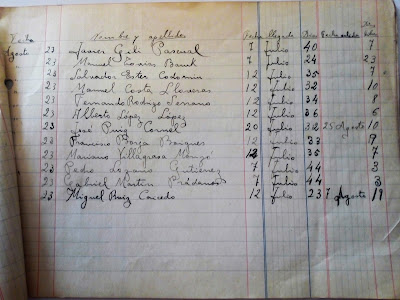 Fecha Nombre y apellidos Fecha llegada Dias
Agosto 23 Javier Gili Pascual 7 Julio 40 7
23 Manuel Bank 7 Julio 24 23
26 Salvador Ester Codornia 12 Julio 35 7
23 Manuel Costa Lloveras 12 Julio 32 10
23 Fernando Rodrigo Serrano 12 Julio 34 8
23 Alberto López López 12 Julio 36 6
23 José Puig 20 Julio 32 25 Agosto 10
23 Francisco Borja 12 Julio 33 9
23 Mariano Villagrasa 12 Julio 35 7
23 Pedro Lozano Gutiérrez 7 Julio 44 3
23 Gabriel Martin Prádanos 7 Julio 44 3
23 Miguel Ruiz Caicedo 12 Julio 23 7 Agosto 19